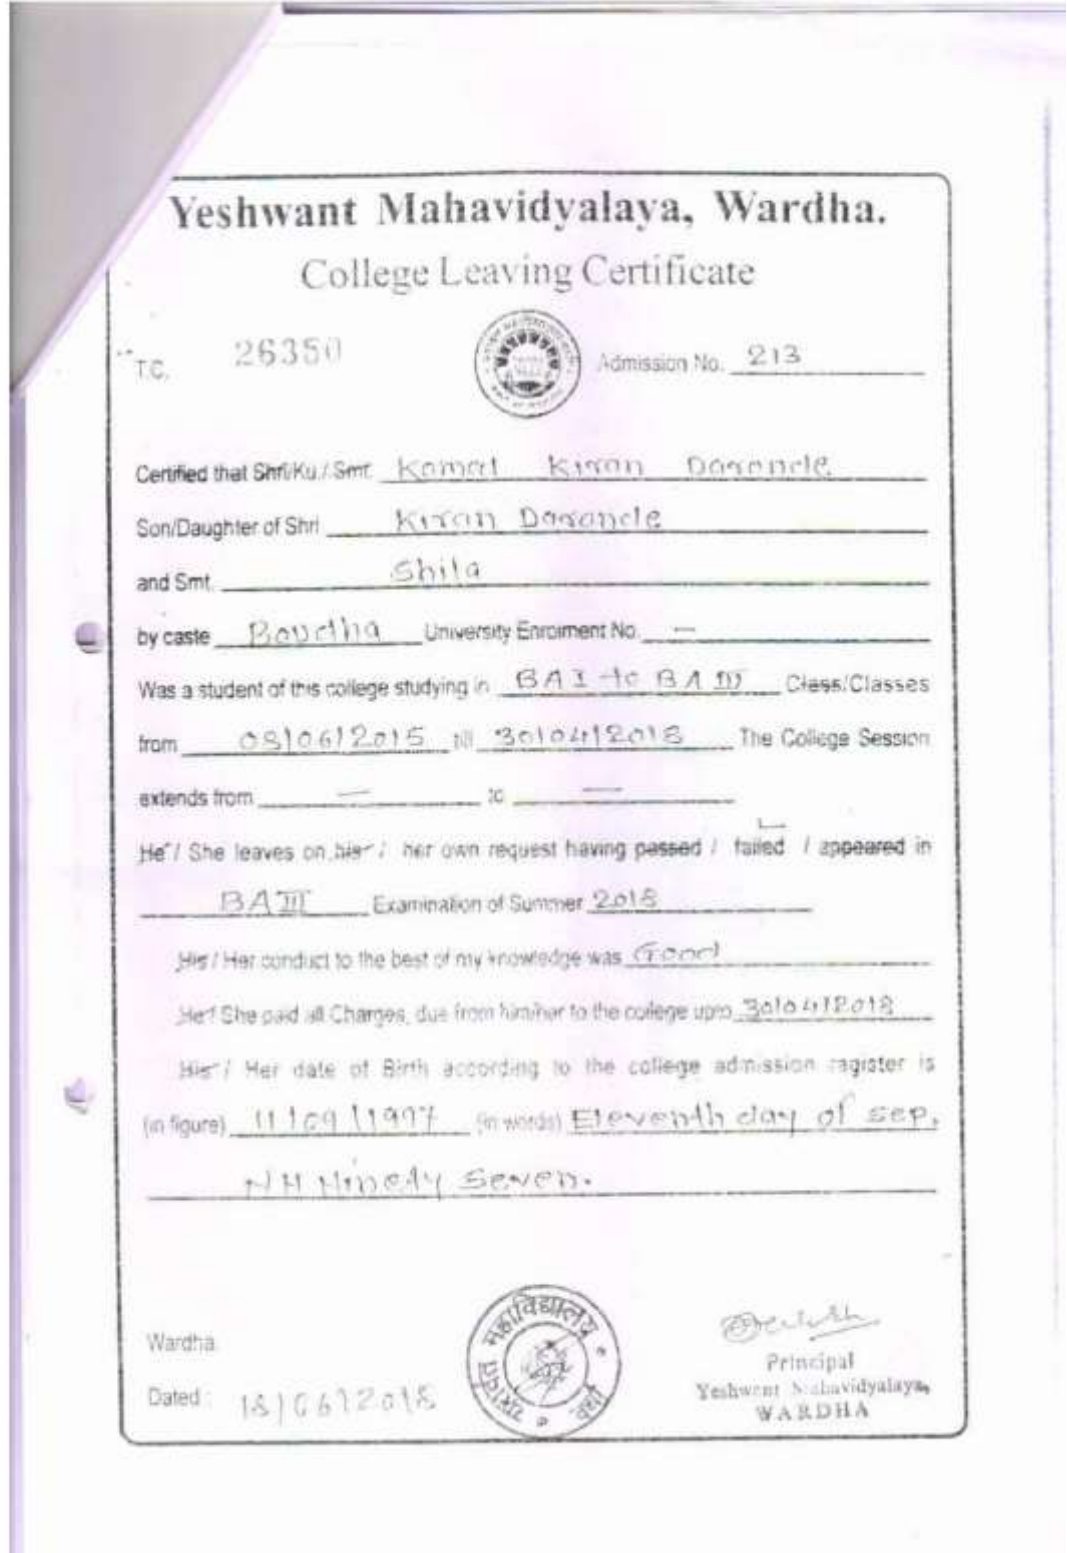 Yeshwant Mahavidyalaya, Wardha.
College Leaving Certificate
T.C. 26350 Admission No. 213
Certified that Shri/Ku./Smt. Komal Kiran Daronde
Son/Daughter of Shri Kiran Daronde
and Smt. Shila
by caste Boudha University Enrolment No. —
Was a student of this college studying in BA I to BA III Class/Classes
from 08/06/2015 till 30/04/2018 The College Session
extends from — to —
He / She leaves on his / her own request having passed / failed / appeared in
BA III Examination of Summer 2018
His / Her conduct to the best of my knowledge was Good
He / She paid all Charges, due from him/her to the college upto 30/04/2018
His / Her date of Birth according to the college admission ragister is
(in figure) 11/09/1997 (in words) Eleventh day of sep.
NH Ninety Seven.
यशवंत महाविद्यालय
Wardha.
Principal
Dated : 18/06/2018 Yeshwant Mahavidyalaya,
WARDHA